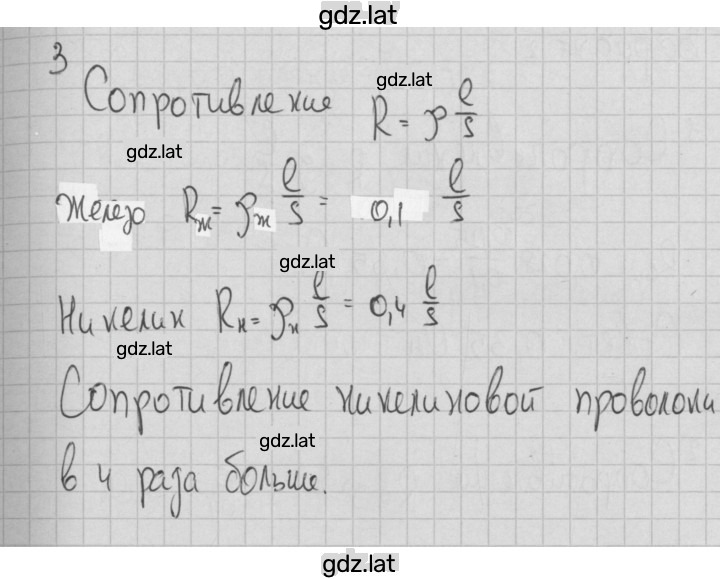 gdz.lat
3
gdz.lat
Сопротивление R = ρ l/s
gdz.lat
Железо Rж = ρж l/s = 0,1 l/s
gdz.lat
Никелин Rн = ρн l/s = 0,4 l/s
gdz.lat
Сопротивление никелиновой проволоки
gdz.lat
в 4 раза больше.
gdz.lat